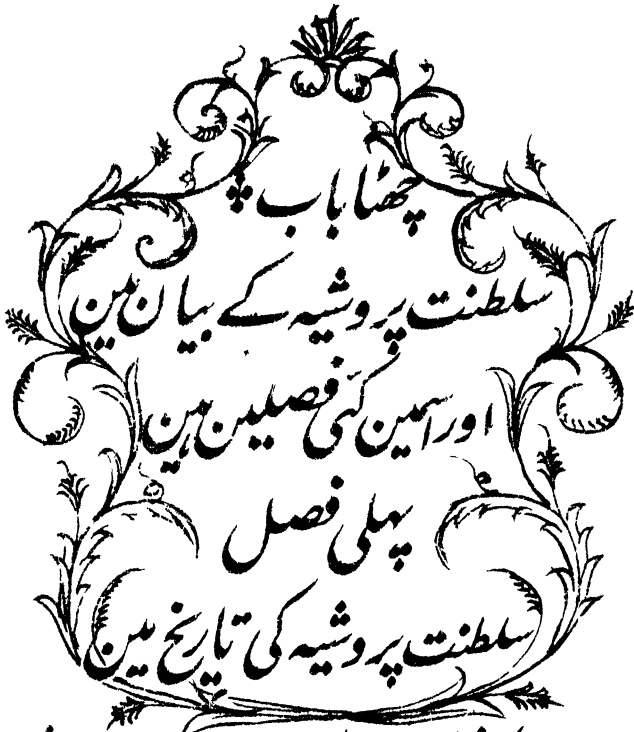 چھٹا باب
سلطنت پروشیہ کے بیان مین
اور اسمین کئی فصلین ہین
پہلی فصل
سلطنت پروشیہ کی تاریخ مین